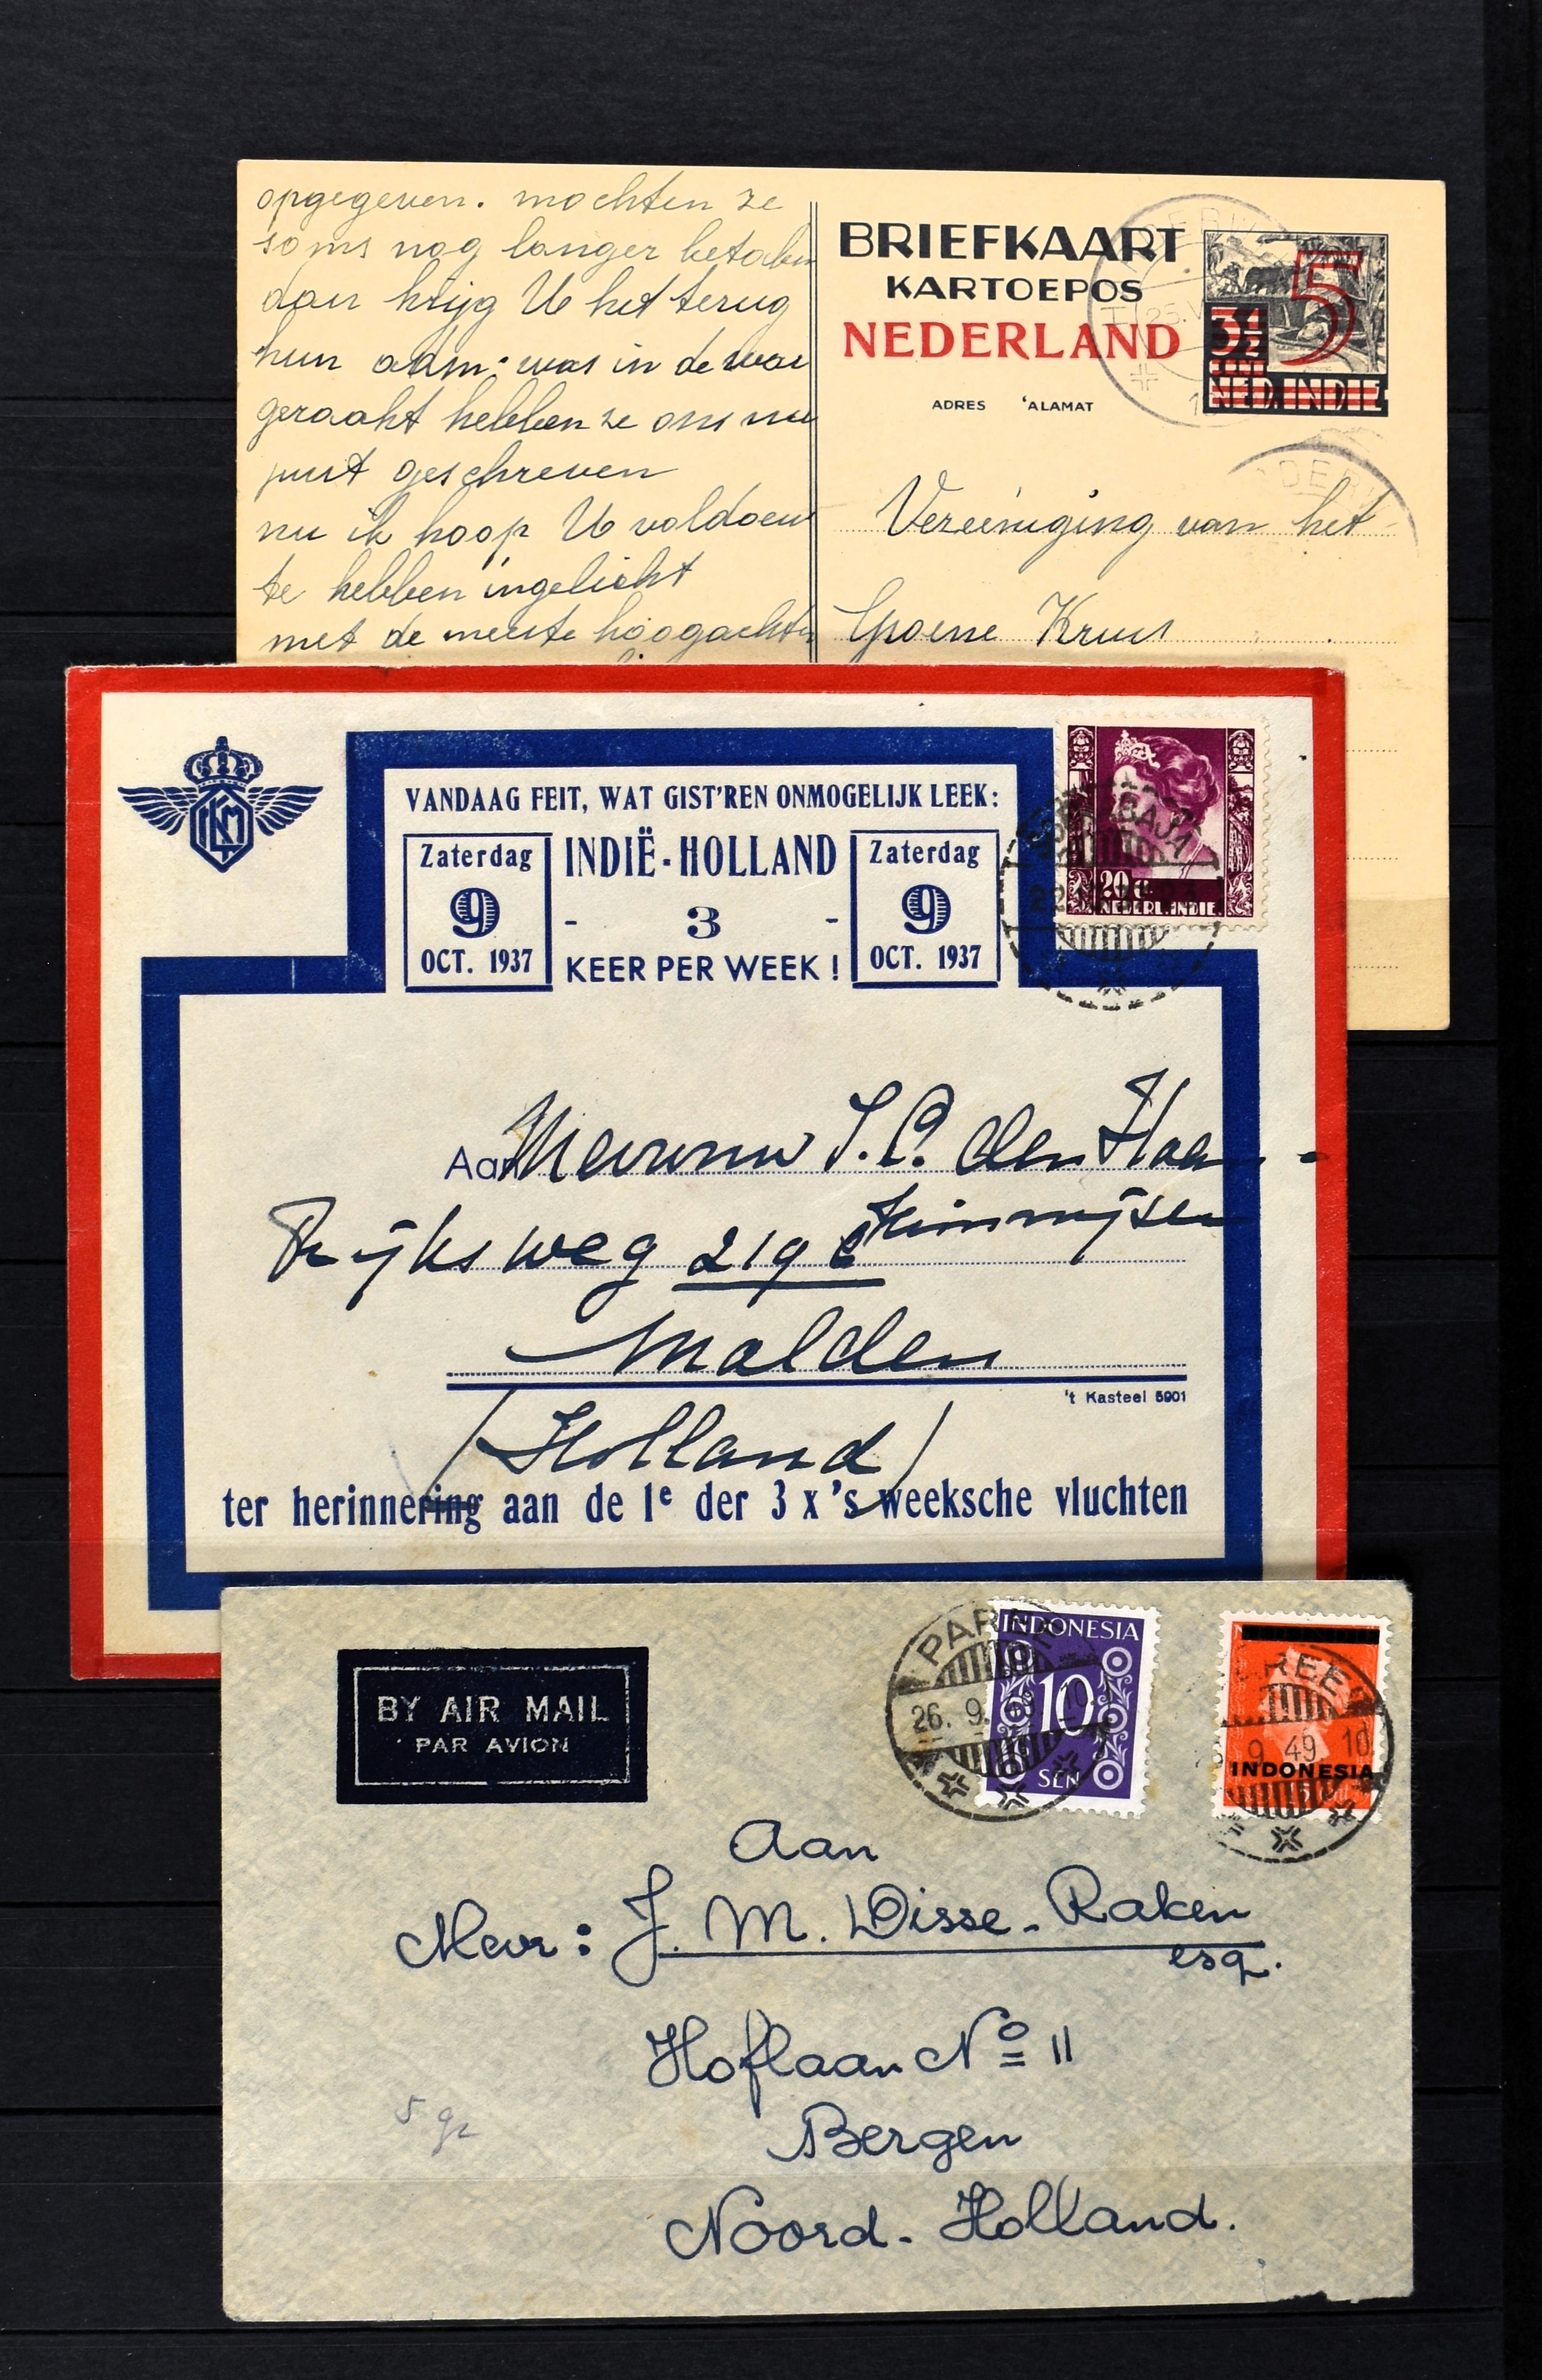 opgegeven. mochten ze
soms nog langer betalen
dan krijg U het terug
hun adm: was in de war
geraakt hebben ze ons nu
juist geschreven
nu ik hoop U voldoende
te hebben ingelicht
met de meeste hoogachten
BRIEFKAART
KARTOEPOS
NEDERLAND
ADRES 'ALAMAT
5
3½
CENT
NED. INDIE
Vereeniging van het
Groene Kruis
KLM
VANDAAG FEIT, WAT GIST'REN ONMOGELIJK LEEK:
Zaterdag
9
OCT. 1937
INDIË-HOLLAND
- 3 -
KEER PER WEEK!
Zaterdag
9
OCT. 1937
20 c
NED. INDIE
Aan Mevrouw J. C. den Haan-
Rijksweg 219
Malden
't Kasteel 5901
/Holland/
ter herinnering aan de 1e der 3 x 's weeksche vluchten
BY AIR MAIL
PAR AVION
INDONESIA
10
SEN
PAREE
26. 9. 49. 10
INDONESIA
PAREE
9 49 10
Aan
Mevr: J. M. Disse-Raken
esq.
Hoflaan No 11
Bergen
Noord-Holland.
5 gr